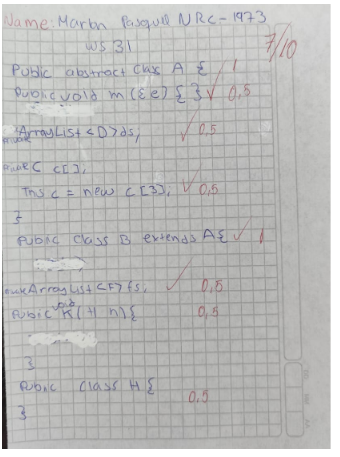 Name: Martin Pasquel NRC - 1973
WS 31
7/10
Public abstract class A { 1
Public void m (E e) { } 0,5
ArrayList <D> ds; 0,5
C c[];
This c = new c [3], 0,5
}
Public class B extends A { 1
ArrayList <F> fs, 0,5
Public void K (H h) { 0,5
}
Public class H {
0,5
}